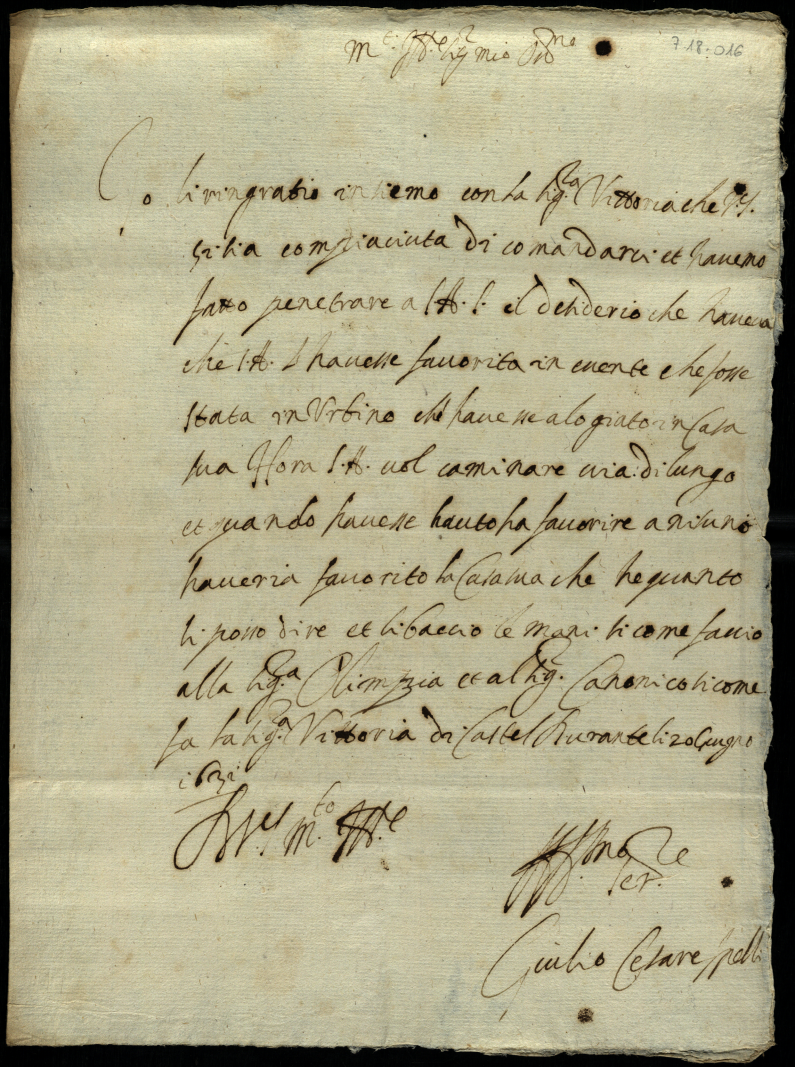 M.to Ill.re Sig.r mio Oss.mo
718-016
Io li ringratio insiemo con la Sig.ra Vittoria che V.S.
si sia compiaciuta di comandarci et havemo
fatto penetrare a S.A.S. il desiderio che haveva
che S.A.S havesse favorita in evente che fosse
stata in Urbino che havesse alogiato in Casa
sua Hora S.A. vol caminare via di lungo
et quando havesse hauto ha favorire a nisuno
haveria favorito la Casa sua che he quanto
li posso dire et li baccio le mani si come faccio
alla Sig.ra Olimpia et al Sig.r Canonico si come
fa la Sig.ra Vittoria di Castel Durante li 20 Giugno
1631
Di V.S. M.to Ill.re
Aff.mo Ser.re
Giulio Cesare